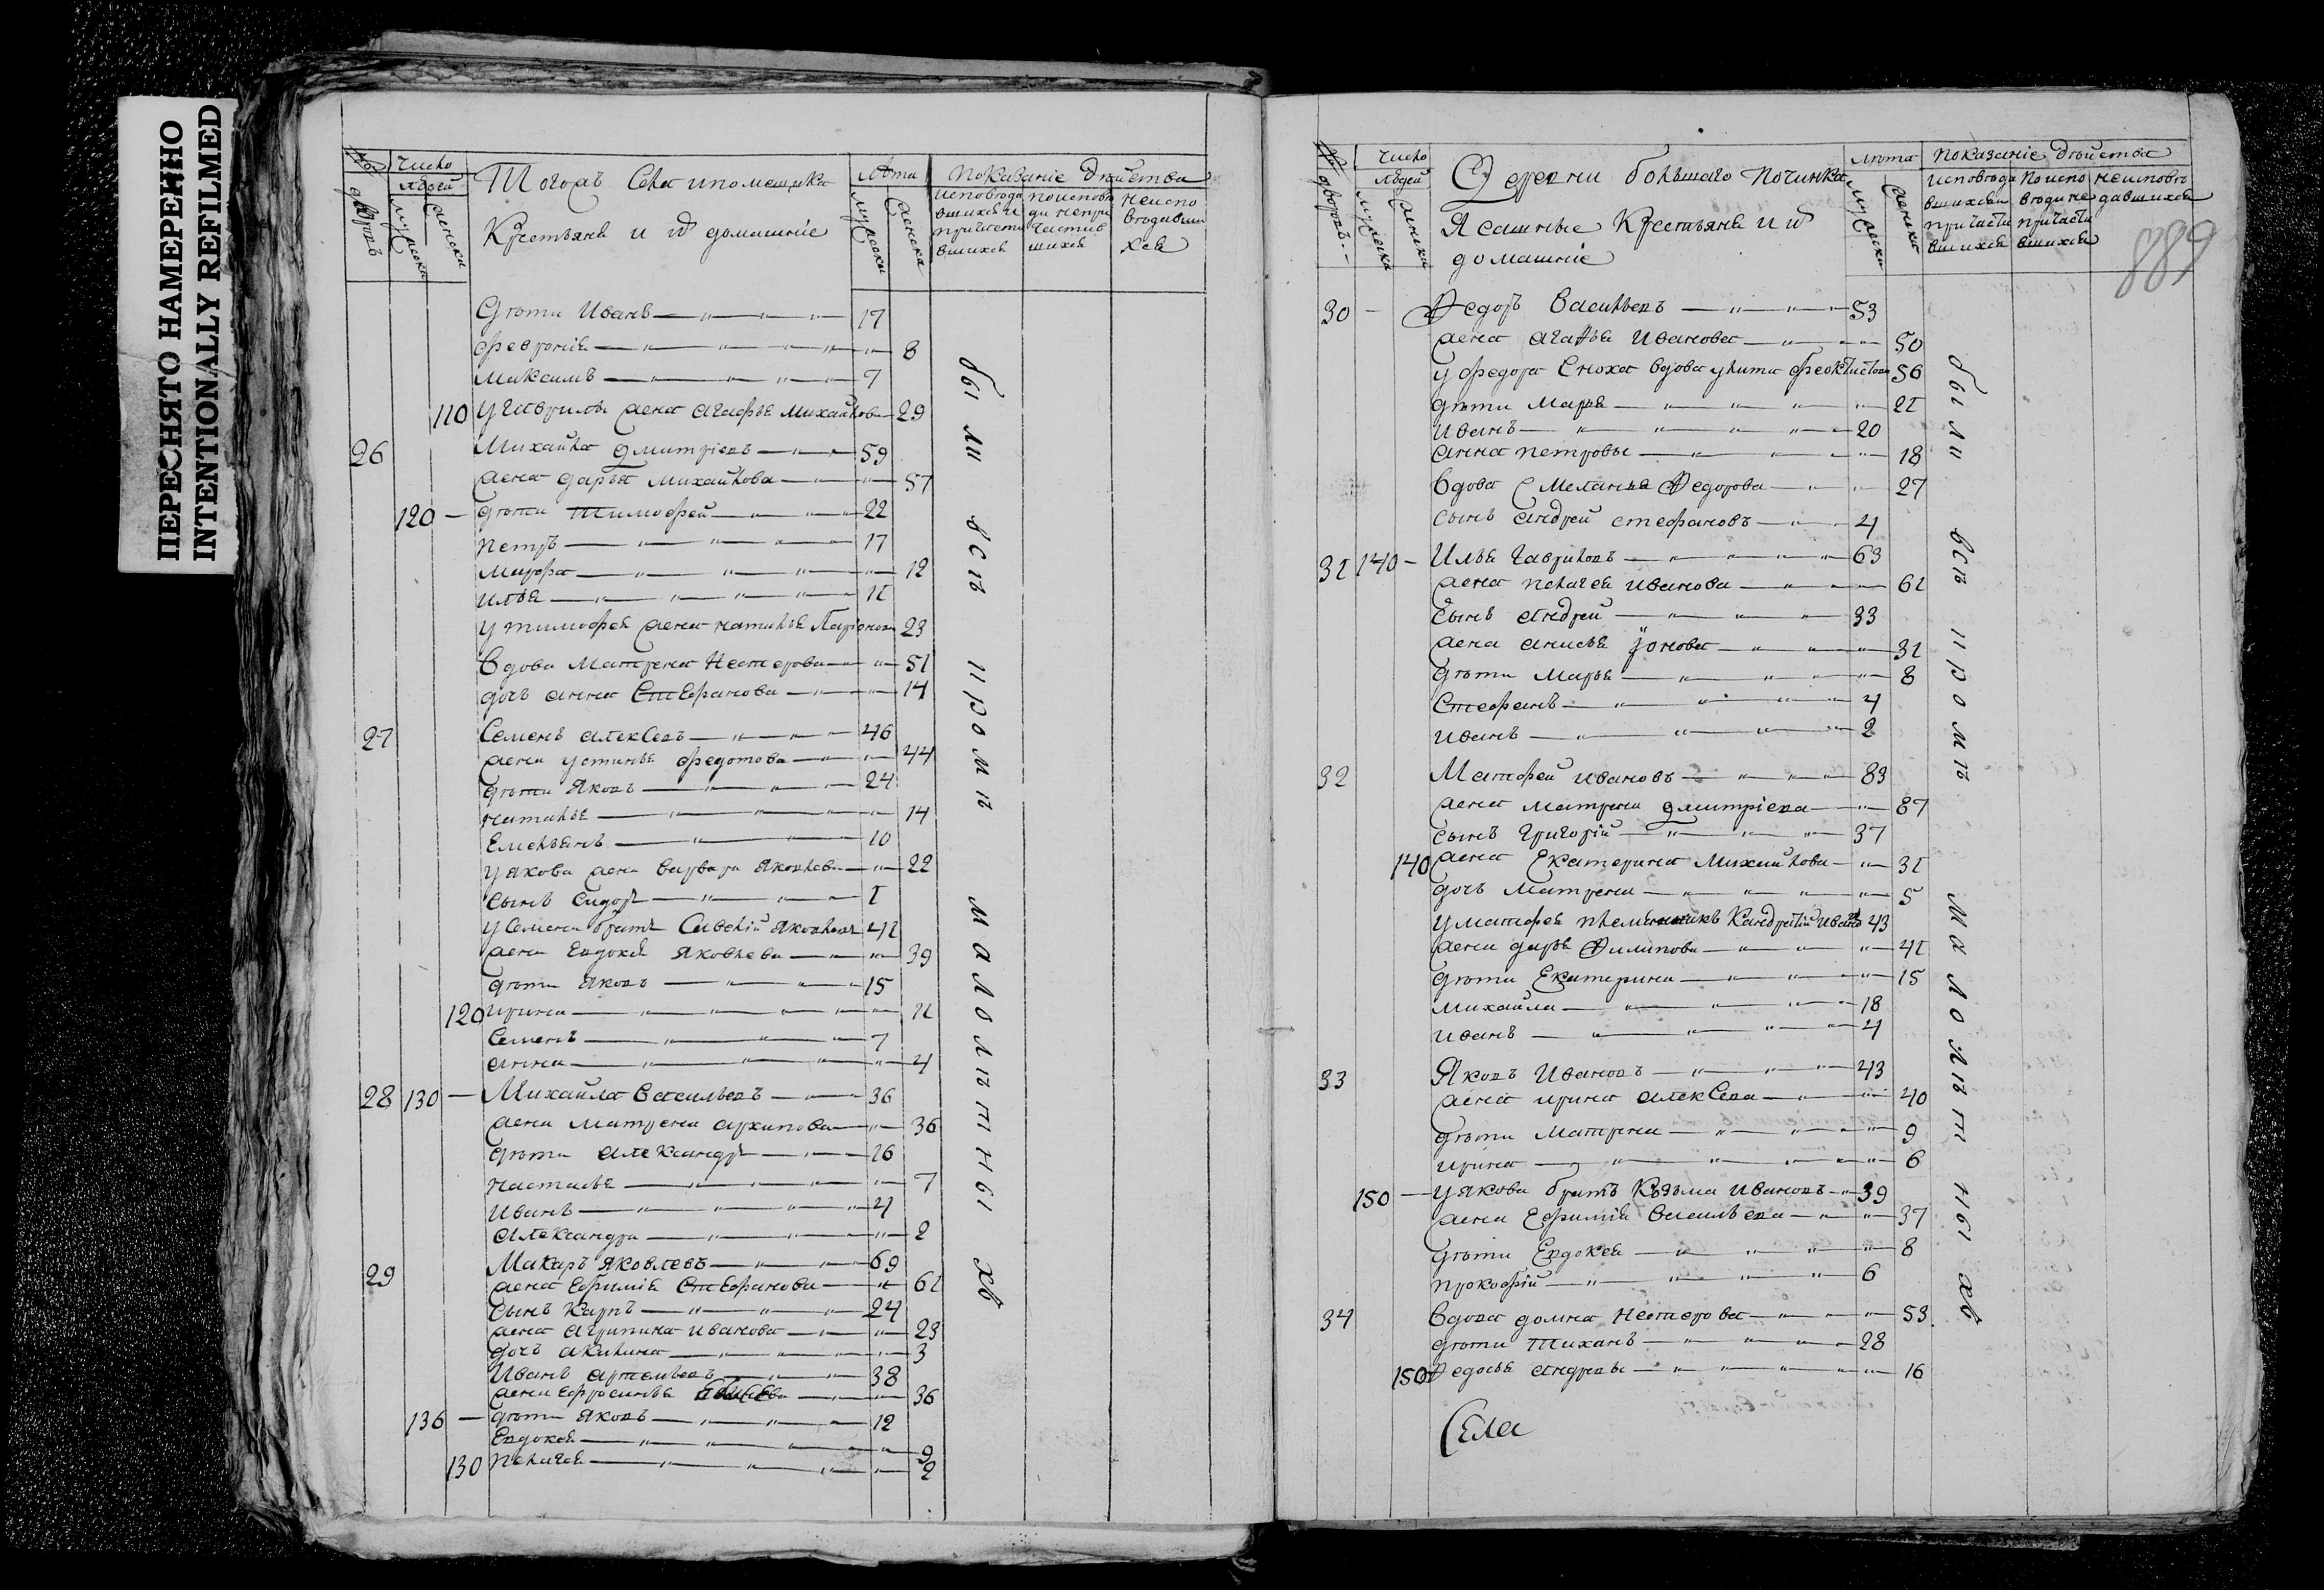 ПЕРЕСНЯТО НАМЕРЕННО
INTENTIONALLY REFILMED
№ дворовъ
Число людей
мужеска
женска
Тогожъ Села и помещика
Крестьяне и ихъ домашніе
Лѣта
мужеска
женска
Показаніе Действа
исповѣдавшихся и причастившихся
по исповеди не причастившихся
неисповѣдавшихся
Дѣти Иванъ 17
Февронія 8
Максимъ 7
110 У Гаврилы жена Агафья Михайлова 29
26 Михайла Дмитріевъ 59
жена Дарья Михайлова 57
120 дѣти Тимофей 22
Петръ 17
Марфа 12
Илья 11
У Тимофея жена Наталья Ларіонова 23
Вдова Матрена Нестерова 51
дочь Анна Стефанова 14
27 Семенъ Алексеевъ 46
жена Устинья Федотова 44
дѣти Яковъ 24
Наталья 14
Емельянъ 10
У Якова жена Варвара Яковлева 22
сынъ Сидоръ 1
У Семена братъ Савелій Яковлевъ 41
жена Евдокея Яковлева 39
дѣти Яковъ 15
120 Ирина 11
Семенъ 7
Анна 4
28 130 Михайла Васильевъ 36
жена Матрена Архипова 36
дѣти Александръ 16
Настасья 7
Иванъ 4
Александра 2
29 Макаръ Яковлевъ 69
жена Ефимія Стефанова 61
Сынъ Карпъ 24
жена Агрипина Иванова 23
дочь Акилина 3
Иванъ Артемьевъ 38
жена Ефросинья 36
136 дѣти Яковъ 12
Евдокея 9
130 Пелагея 2
были вси кромѣ малолѣтныхъ
889
№ дворовъ
Число людей
мужеска
женска
Деревни большаго Починка
Ясашные Крестьяне и ихъ
домашніе
лѣта
мужеска
женска
Показаніе Действа
исповѣдавшихся и причастившихся
по исповѣди не причастившихся
неисповѣдавшихся
30 Федоръ Васильевъ 53
жена Агафья Иванова 50
У Федора Сноха вдова Улита Феоктистова 56
дѣти Марья 21
Иванъ 20
Анна Петровы 18
Вдова Меланья Федорова 27
сынъ Андрей Стефановъ 4
31 140 Илья Гавриловъ 63
жена Пелагея Иванова 61
Сынъ Андрей 33
жена Анисья Іонова 31
Дѣти Марья 8
Стефанъ 4
Иванъ 2
32 Матфей Ивановъ 83
жена Матрена Дмитріева 87
сынъ Григорій 37
140 жена Екатерина Михайлова 31
дочь Матрена 5
У Матфея племянникъ Кандратій Ивановъ 43
жена Дарья Филипова 41
дѣти Екатерина 15
Михайла 18
Иванъ 4
33 Яковъ Ивановъ 43
жена Ирина Алексеева 40
дѣти Матрена 9
Ирина 6
150 У Якова братъ Козьма Ивановъ 39
жена Ефимія Васильева 37
Дѣти Евдокея 8
Прокофій 6
34 Вдова Домна Нестерова 53
дѣти Тихонъ 28
150 Федосья Андреевы 16
были вси кромѣ малолѣтныхъ
Села